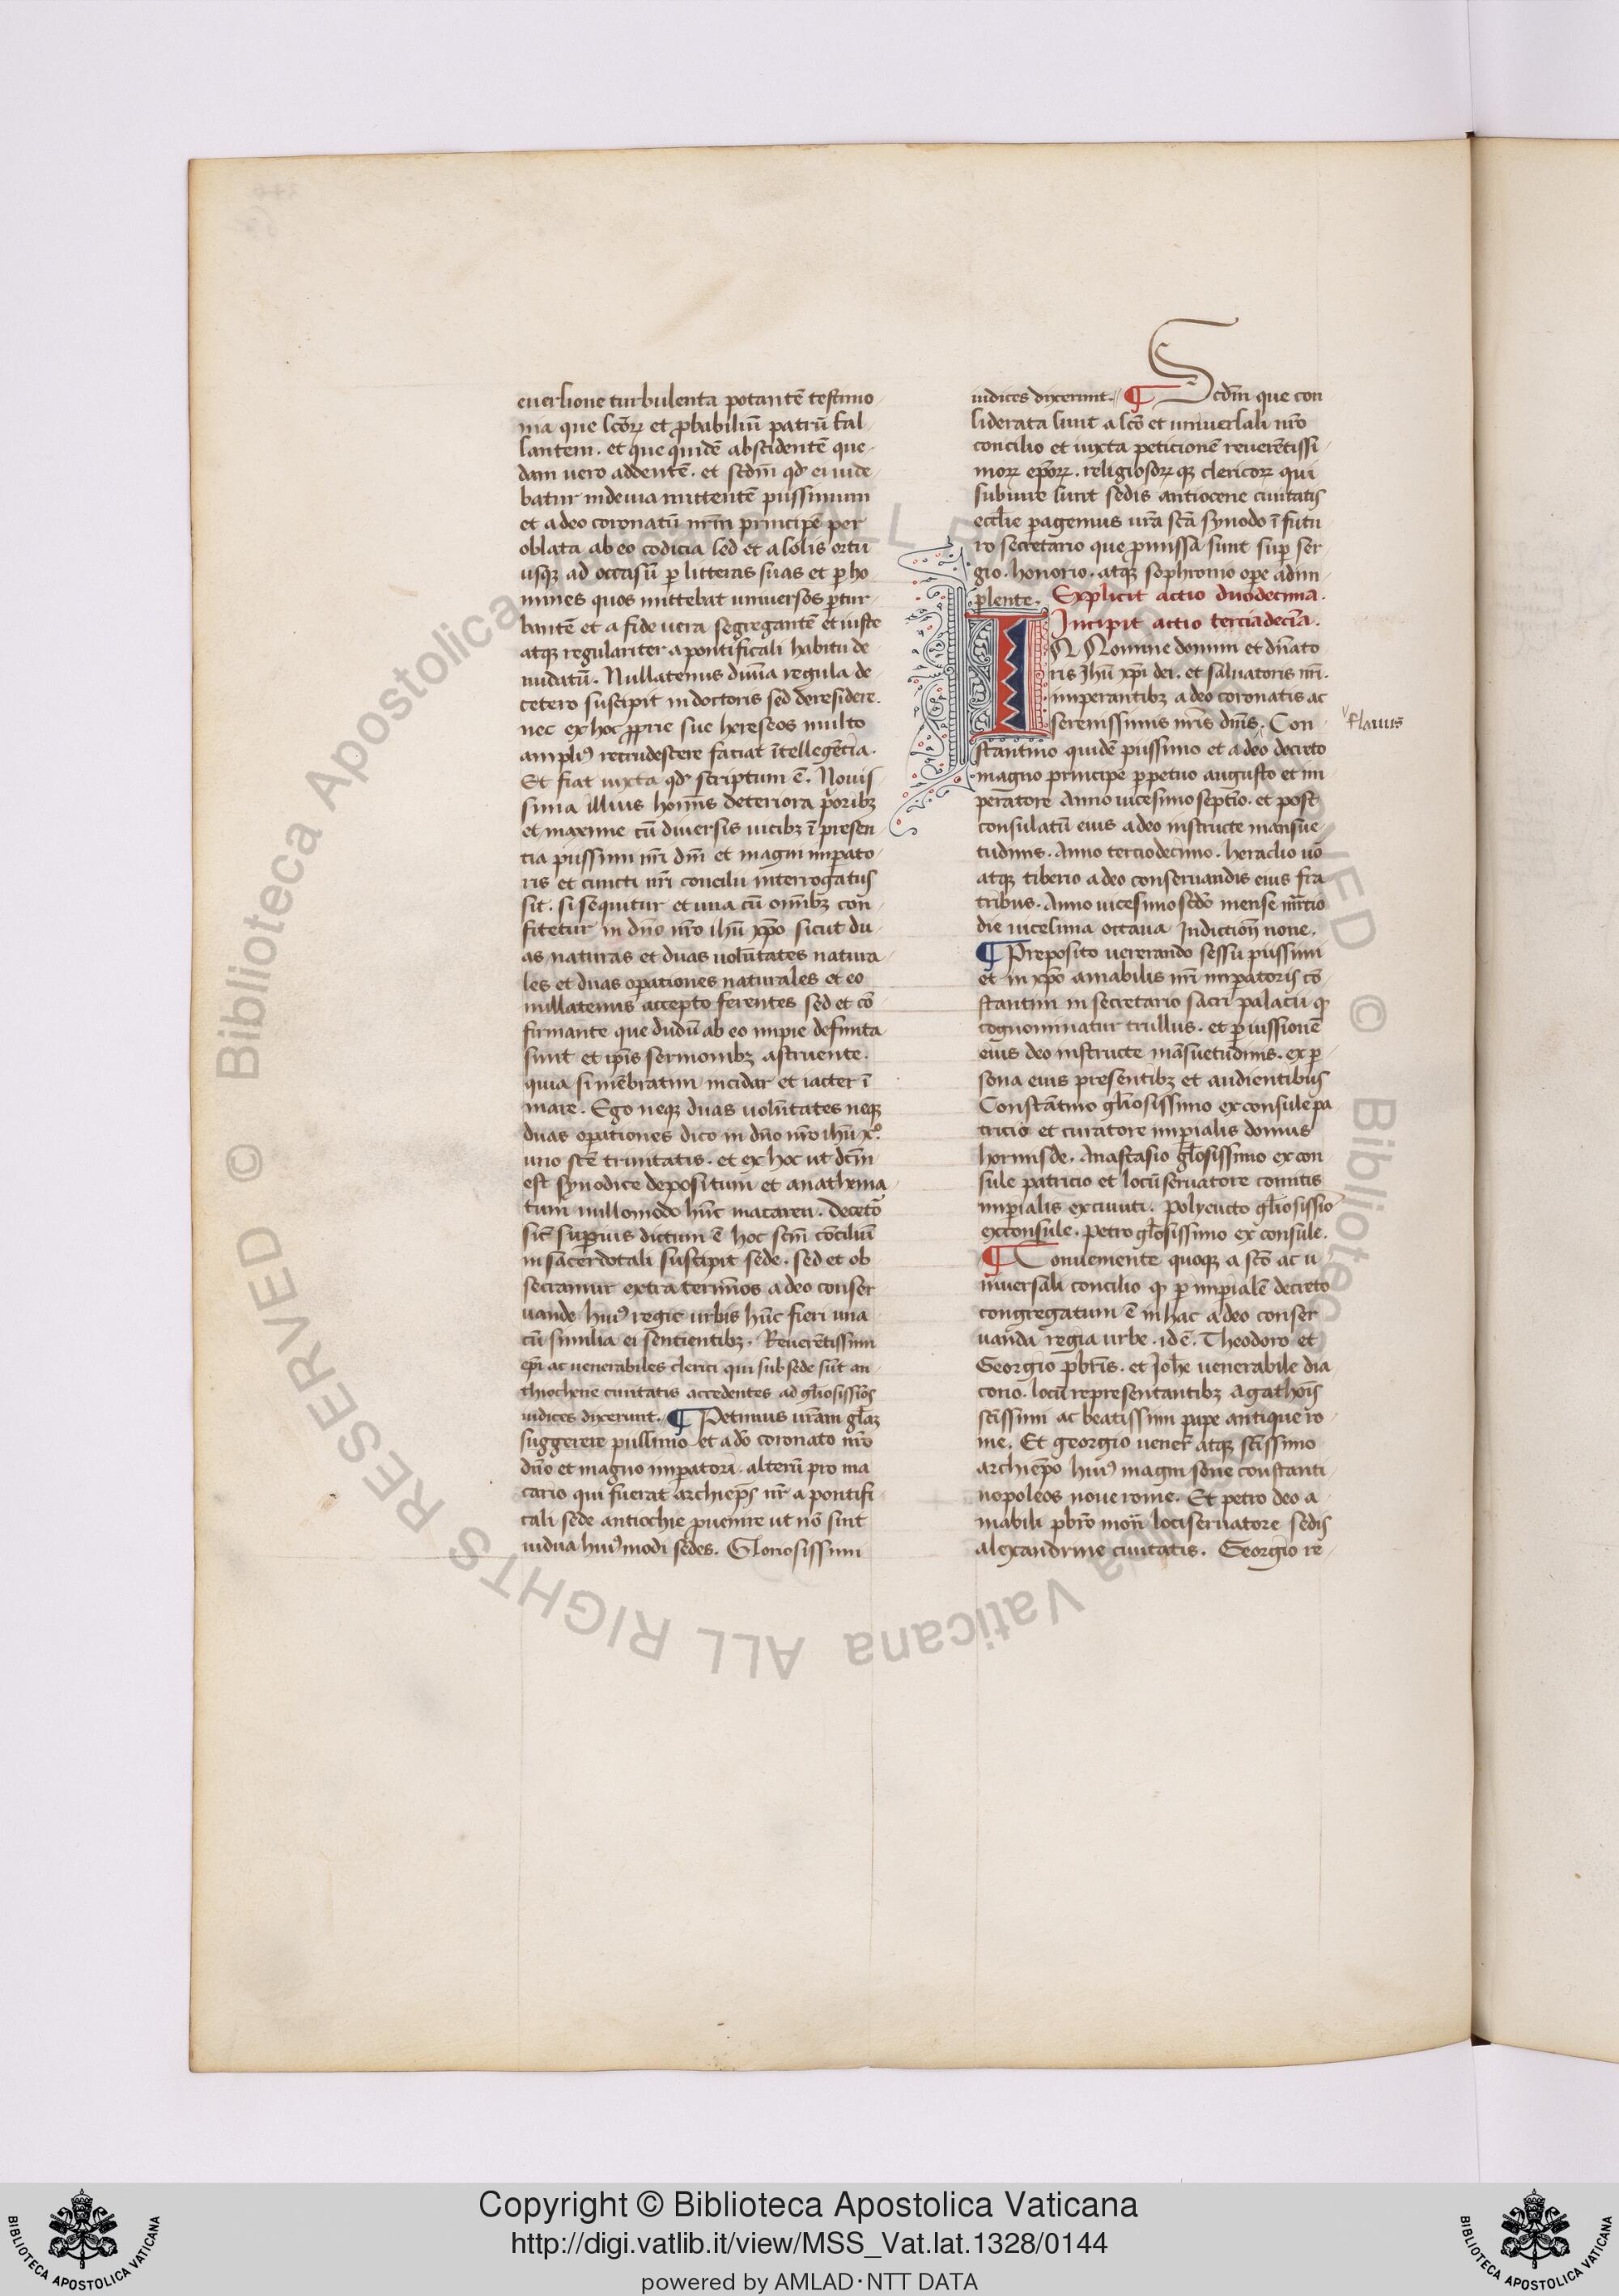 euersione turbulenta potantē testimo
nia que scōrꝝ et ꝓbabiliū patrū fal
lantem. et que quidē abscidentē que
dam uero addentē. et scdm̄ qd̓ ei uide
batur in deuia mittentē piissimum
et a deo coronatū nrm̄ principē per
oblata ab eo codicia sed et a solis ortu
usqꝫ ad occasū ꝑ litteras suas et ꝑ ho
mines quos mittebat uniuersos ꝑtur
bantē et a fide uera segregantē et iuste
atqꝫ regulariter a pontificali habitu de
nudatū. Nullatenus diuīa regula de
cetero suscipit in doctoris sed de residere.
nec ex hoc ꝓprie sue hereseos multo
ampliꝰ recrudescere faciat ītellegētia.
Et fiat iuxta qd̓ scriptum ē. Nouis
sima illius homīs deteriora p̓oribꝫ
et maxime cū diuersis uicibꝫ ī presen
tia piissimi nr̄i dn̄i et magni imꝑato
ris et cuncti nr̄i concilii interrogatus
sit. si sequitur et una cū omībꝫ con
fitetur in dn̄o nr̄o ihū xp̄o sicut du
as naturas et duas uolūtates natura
les et duas oꝑationes naturales et eo
nullatenus accepto ferentes sed et cō
firmante que dudū ab eo impie definita
sunt et ip̄is sermonibꝫ astruente.
quia si mēbratim incidar et iacter ī
mare. Ego neqꝫ duas uolūtates neqꝫ
duas oꝑationes dico in dn̄o nr̄o ihū x̄º
uno scē trinitatis. et ex hoc ut dcm̄
est synodice depositum et anathema
tum nullomodo hūc macareū. deceto᷒
sic̄ suꝑius dictum ē hoc scm̄ cōciliū
in sacerdotali suscipit sede. sed et ob
secramur extra termīos a deo conser
uande huiꝰ regie urbis hūc fieri una
cū similia ei sentientibꝫ. Reuerētissimi
ep̄i ac uenerabiles clerici qui sub sede sūt an
thiochene ciuitatis accedentes ad gl̄iosissiōs
iudices dixerunt. ¶ Petimus ur̄am gl̄iaꝫ
suggerere piissimo et a dō coronato nr̄o
dn̄o et magno imꝑatori. alterū pro ma
cario qui fuerat archiep̄s nr̄ a pontifi
cali sede antiochie ꝓuenire ut nō sint
uidua huiꝰmodi sedes. Gloriosissimi
iudices dixerunt. ¶ Scdm̄ que con
siderata sunt a scō et uniuersali nr̄o
concilio et iuxta peticionē reuerētissi
morꝝ ep̄orꝝ. religiosorꝝ qꝫ clericorꝝ qui
subiure sunt sedis antiocene ciuitatis
eccl̄ie pagemus ur̄a scā synodo ī futu
ro secretario que p̄missa sunt suꝑ ser
gio. honorio. atqꝫ sophronio oꝑe adim
plente. Explicit actio duodecima.
Incipit actio terciadecīa.
IN Nomine domini et dn̄ato
ris Jhū xp̄i dei. et saluatoris nr̄i.
imperantibꝫ a deo coronatis ac
serenissimis nr̄is dn̄is. Con
flauus
stantino quidē piissimo et a deo decreto
magno principe ꝑpetuo augusto et im
peratore Anno uicesimo septīo. et post
consulatū eius a deo instructe mansue
tudinis. Anno terciodecimo. heraclio uō
atqꝫ tiberio a deo conseruandis eius fra
tribus. Anno uicesimo scd̄o mense mr̄tio
die uicesima octaua Indiction̄ none.
¶ Preposito uenerando sessu piissimi
et in xp̄o amabilis nr̄i imꝑatoris cō
stantini in secretario sacri palacii qͥ
cognominatur trullus. et ꝑ iussionē
eius deo instructe māsuetudinis. ex ꝑ
sona eius presentibꝫ et audientibus
Constātino gl̄iosissimo ex consule pa
tricio et curatore imꝑialis domus
hormisde. Anastasio gl̄osissimo ex con
sule patricio et locū seruatore comitis
imꝑialis excuuiti. Polyeucto gl̄iosissīo
exconsule. Petro gl̄osissimo ex consule.
¶ Conuemente quoqꝫ a scō ac u
niuersali concilio qͥ ꝑ imꝑialē decreto
congregatum ē in hac a deo conser
uanda regia urbe. idē. Theodoro et
Georgio pbr̄is. et Joh̄e uenerabile dia
cono. locū representantibꝫ Agathoīs
scīssimi ac beatissimi pape antique ro
me. Et georgio uener̄ atqꝫ scīssimo
archiep̄o huiꝰ magni sone constanti
nopoleos noue rome. Et petro deo a
mabili pbr̄o mon̄ lociseruatore sedis
alexandrine ciuitatis. Georgio re
Copyright © Biblioteca Apostolica Vaticana
http://digi.vatlib.it/view/MSS_Vat.lat.1328/0144
powered by AMLAD·NTT DATA
BIBLIOTECA APOSTOLICA VATICANA
BIBLIOTECA APOSTOLICA VATICANA
© Biblioteca Apostolica Vaticana ALL RIGHTS RESERVED